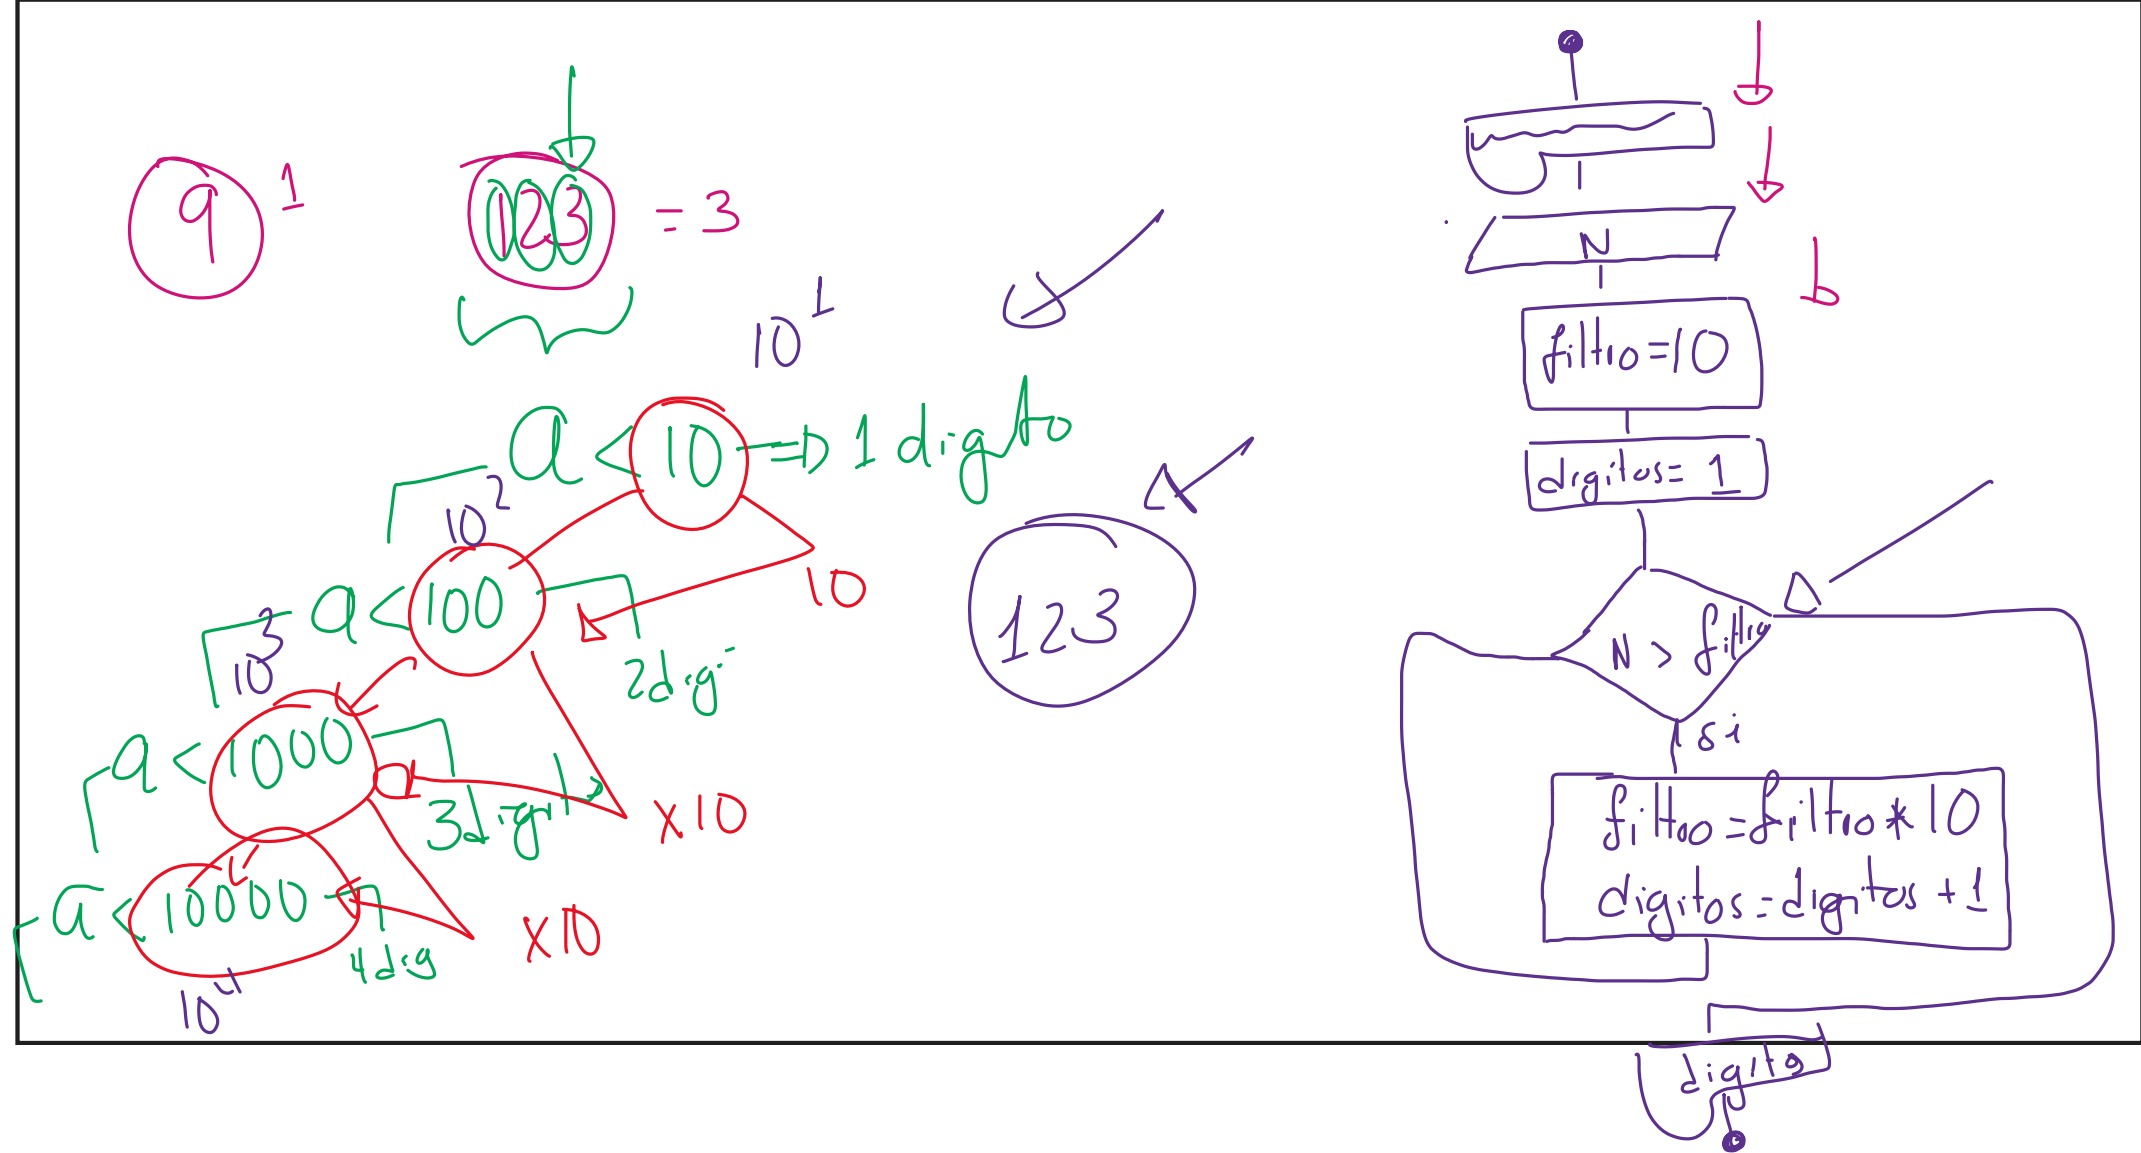 9 1
123 = 3
10^1
a < 10 => 1 digito
10^2
a < 100
10
2dig
10^3
a < 1000
3digit
x10
a < 10000
4dig
x10
10^4
123
N
filtro=10
digitos= 1
N > filtro
si
filtro=filtro*10
digitos=digitos+1
digito